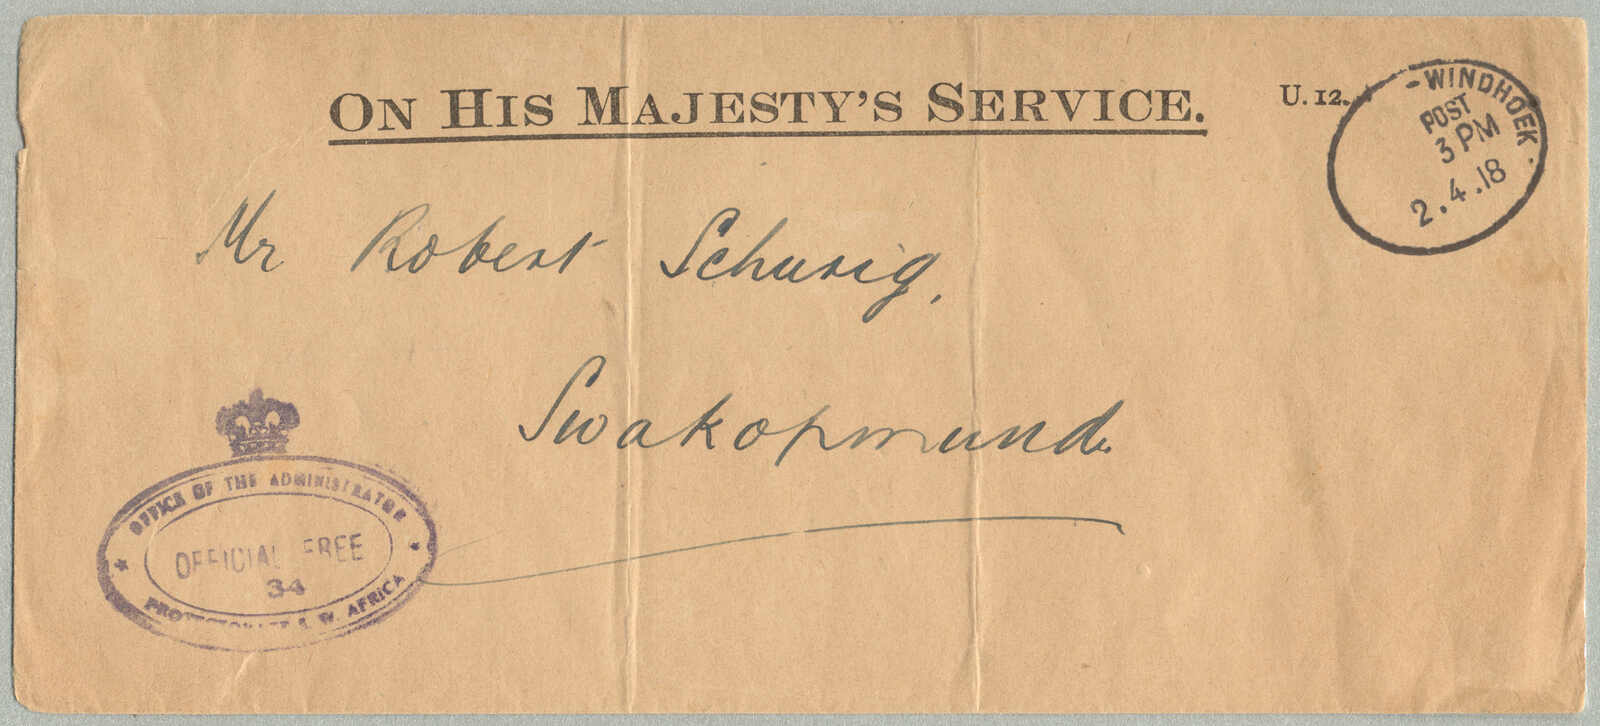 ON HIS MAJESTY'S SERVICE.
U. 12.
- WINDHOEK.
POST
3 PM
2.4.18
Mr Robert Schurig,
Swakopmund.
OFFICE OF THE ADMINISTRATOR
OFFICIAL FREE
34
PROTECTORATE S. W. AFRICA